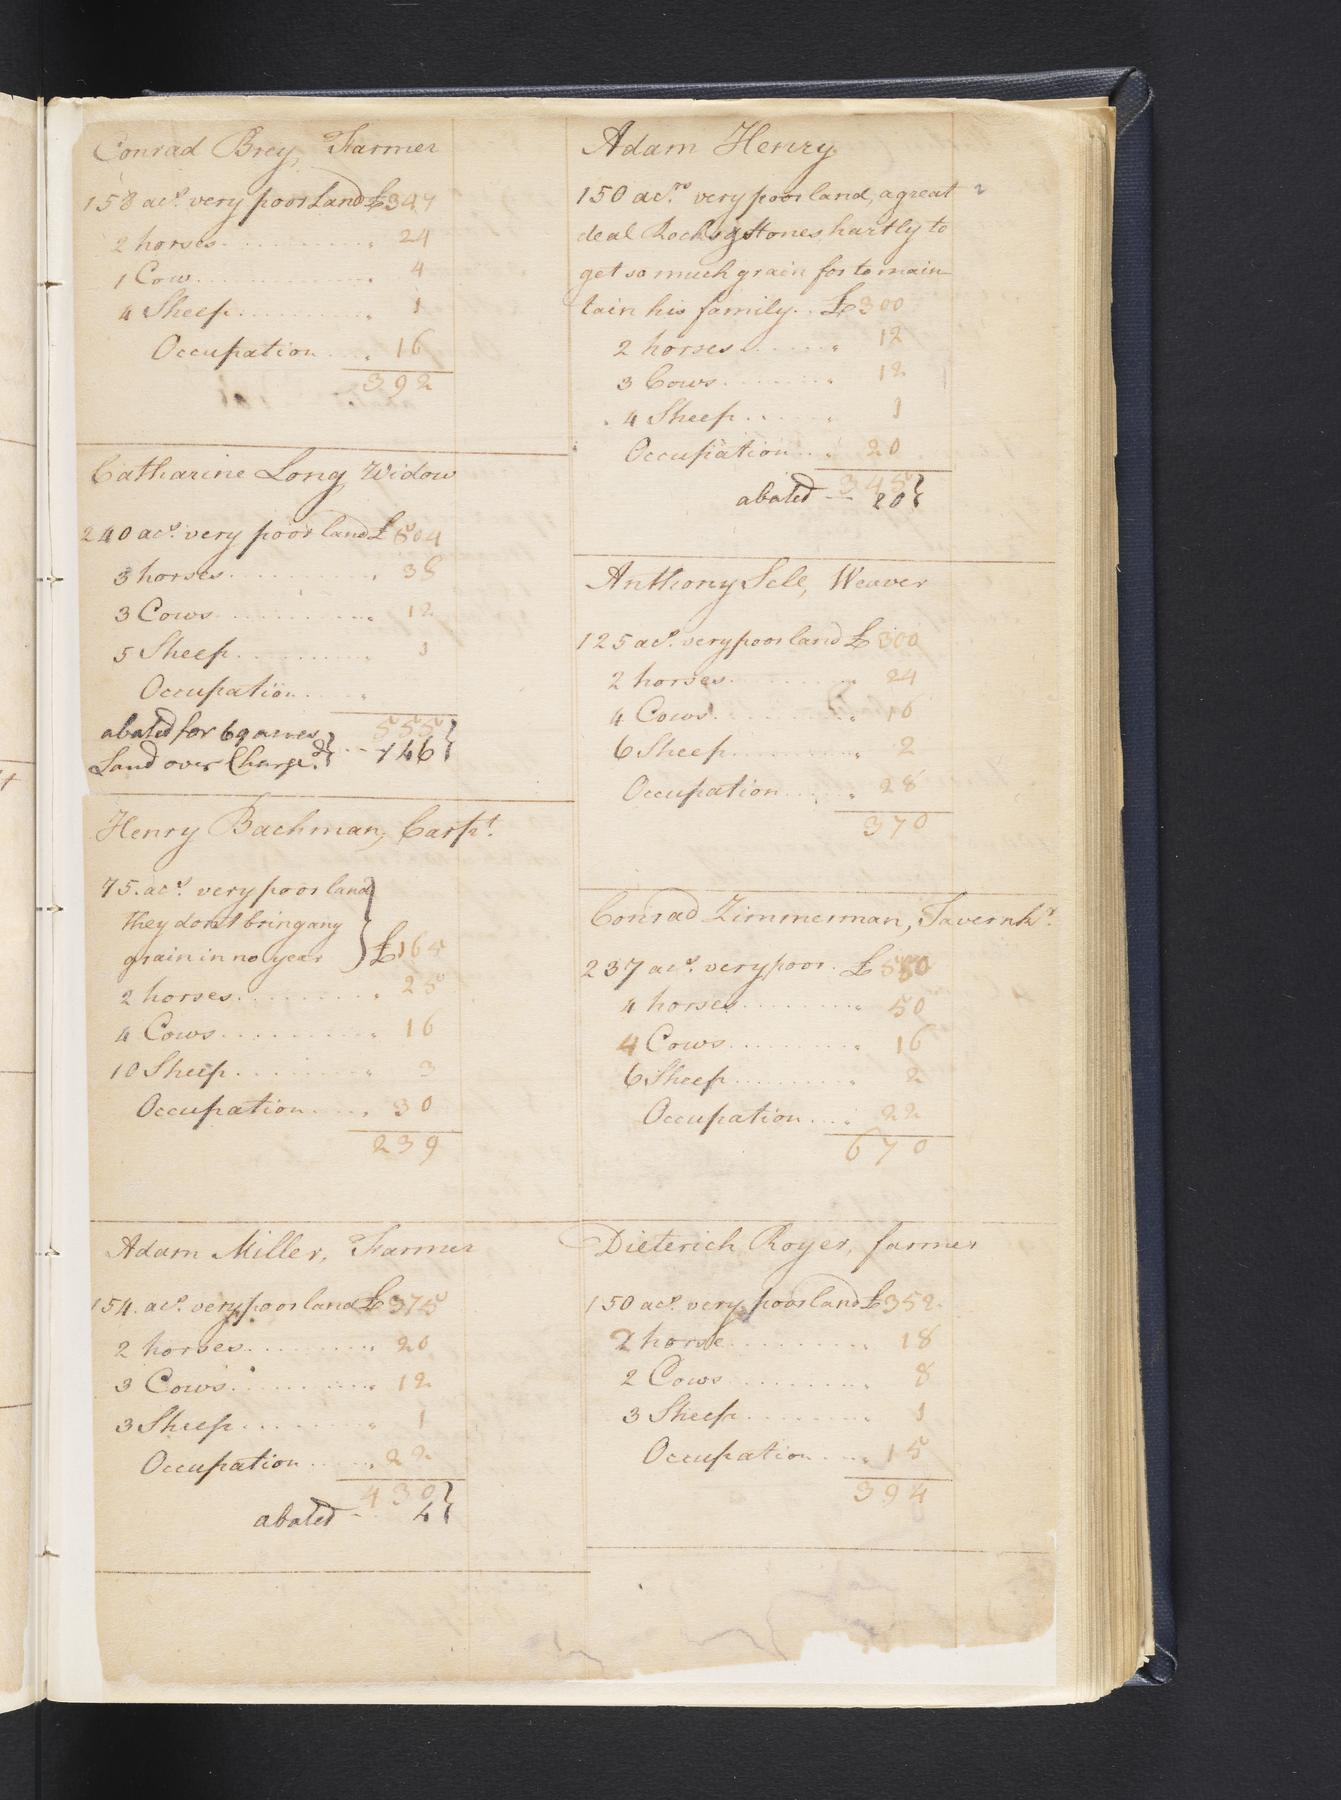 Conrad Brey, Farmer
158 acs. very poor Land £347
2 horses . . . . . . . . . . . . " 24
1 Cow . . . . . . . . . . . . " 4
4 Sheep . . . . . . . . . . " 1
Occupation . . . " 16
392
Catharine Long Widow
240 acs. very poor land £504
3 horses . . . . . . . . . . . " 38
3 Cows . . . . . . . . . . . . " 12
5 Sheep . . . . . . . . . . " 1
Occupation . . . . "
abated for 69 acres } 555 }
Land over Charged. } - - - 146 }
Henry Bachman, Carpt.
75. acs. very poor land }
they dont bring any }
grain in no year } £165
2 horses . . . . . . . . . . " 25
4 Cows . . . . . . . . . . . " 16
10 Sheep . . . . . . . . . " 3
Occupation . . . . " 30
239
Adam Miller, Farmer
154. acs. very poor land £375
2 horses . . . . . . . . . . " 20
3 Cows . . . . . . . . . . . " 12
3 Sheep . . . . . . . . . . " 1
Occupation . . . . . " 22
430 }
abated - 4 }
Adam Henry
150 acrs. very poor land, a great
deal Rocks & Stones hartly to
get so much grain for to main-
tain his family . . £300
2 horses . . . . . . . " 12
3 Cows . . . . . . . . " 12
4 Sheep . . . . . . " 1
Occupation . . " 20
345 }
abated - - 20 }
Anthony Sele, Weaver
125 acs. very poor land £300
2 horses . . . . . . . . . . " 24
4 Cows . . . . . . . . . . . " 16
6 Sheep . . . . . . . . . . " 2
Occupation . . . . . " 28
370
Conrad Zimmerman, Tavernkr.
237 acs. very poor . £580
4 horses . . . . . . . . . " 50
4 Cows . . . . . . . . . . " 16
6 Sheep . . . . . . . . . " 2
Occupation . . . . " 22
670
Dieterich Royer, farmer
150 acs. very poor land £352
2 horse . . . . . . . . . . . " 18
2 Cows . . . . . . . . . . . " 8
3 Sheep . . . . . . . . . . " 1
Occupation . . . . " 15
394